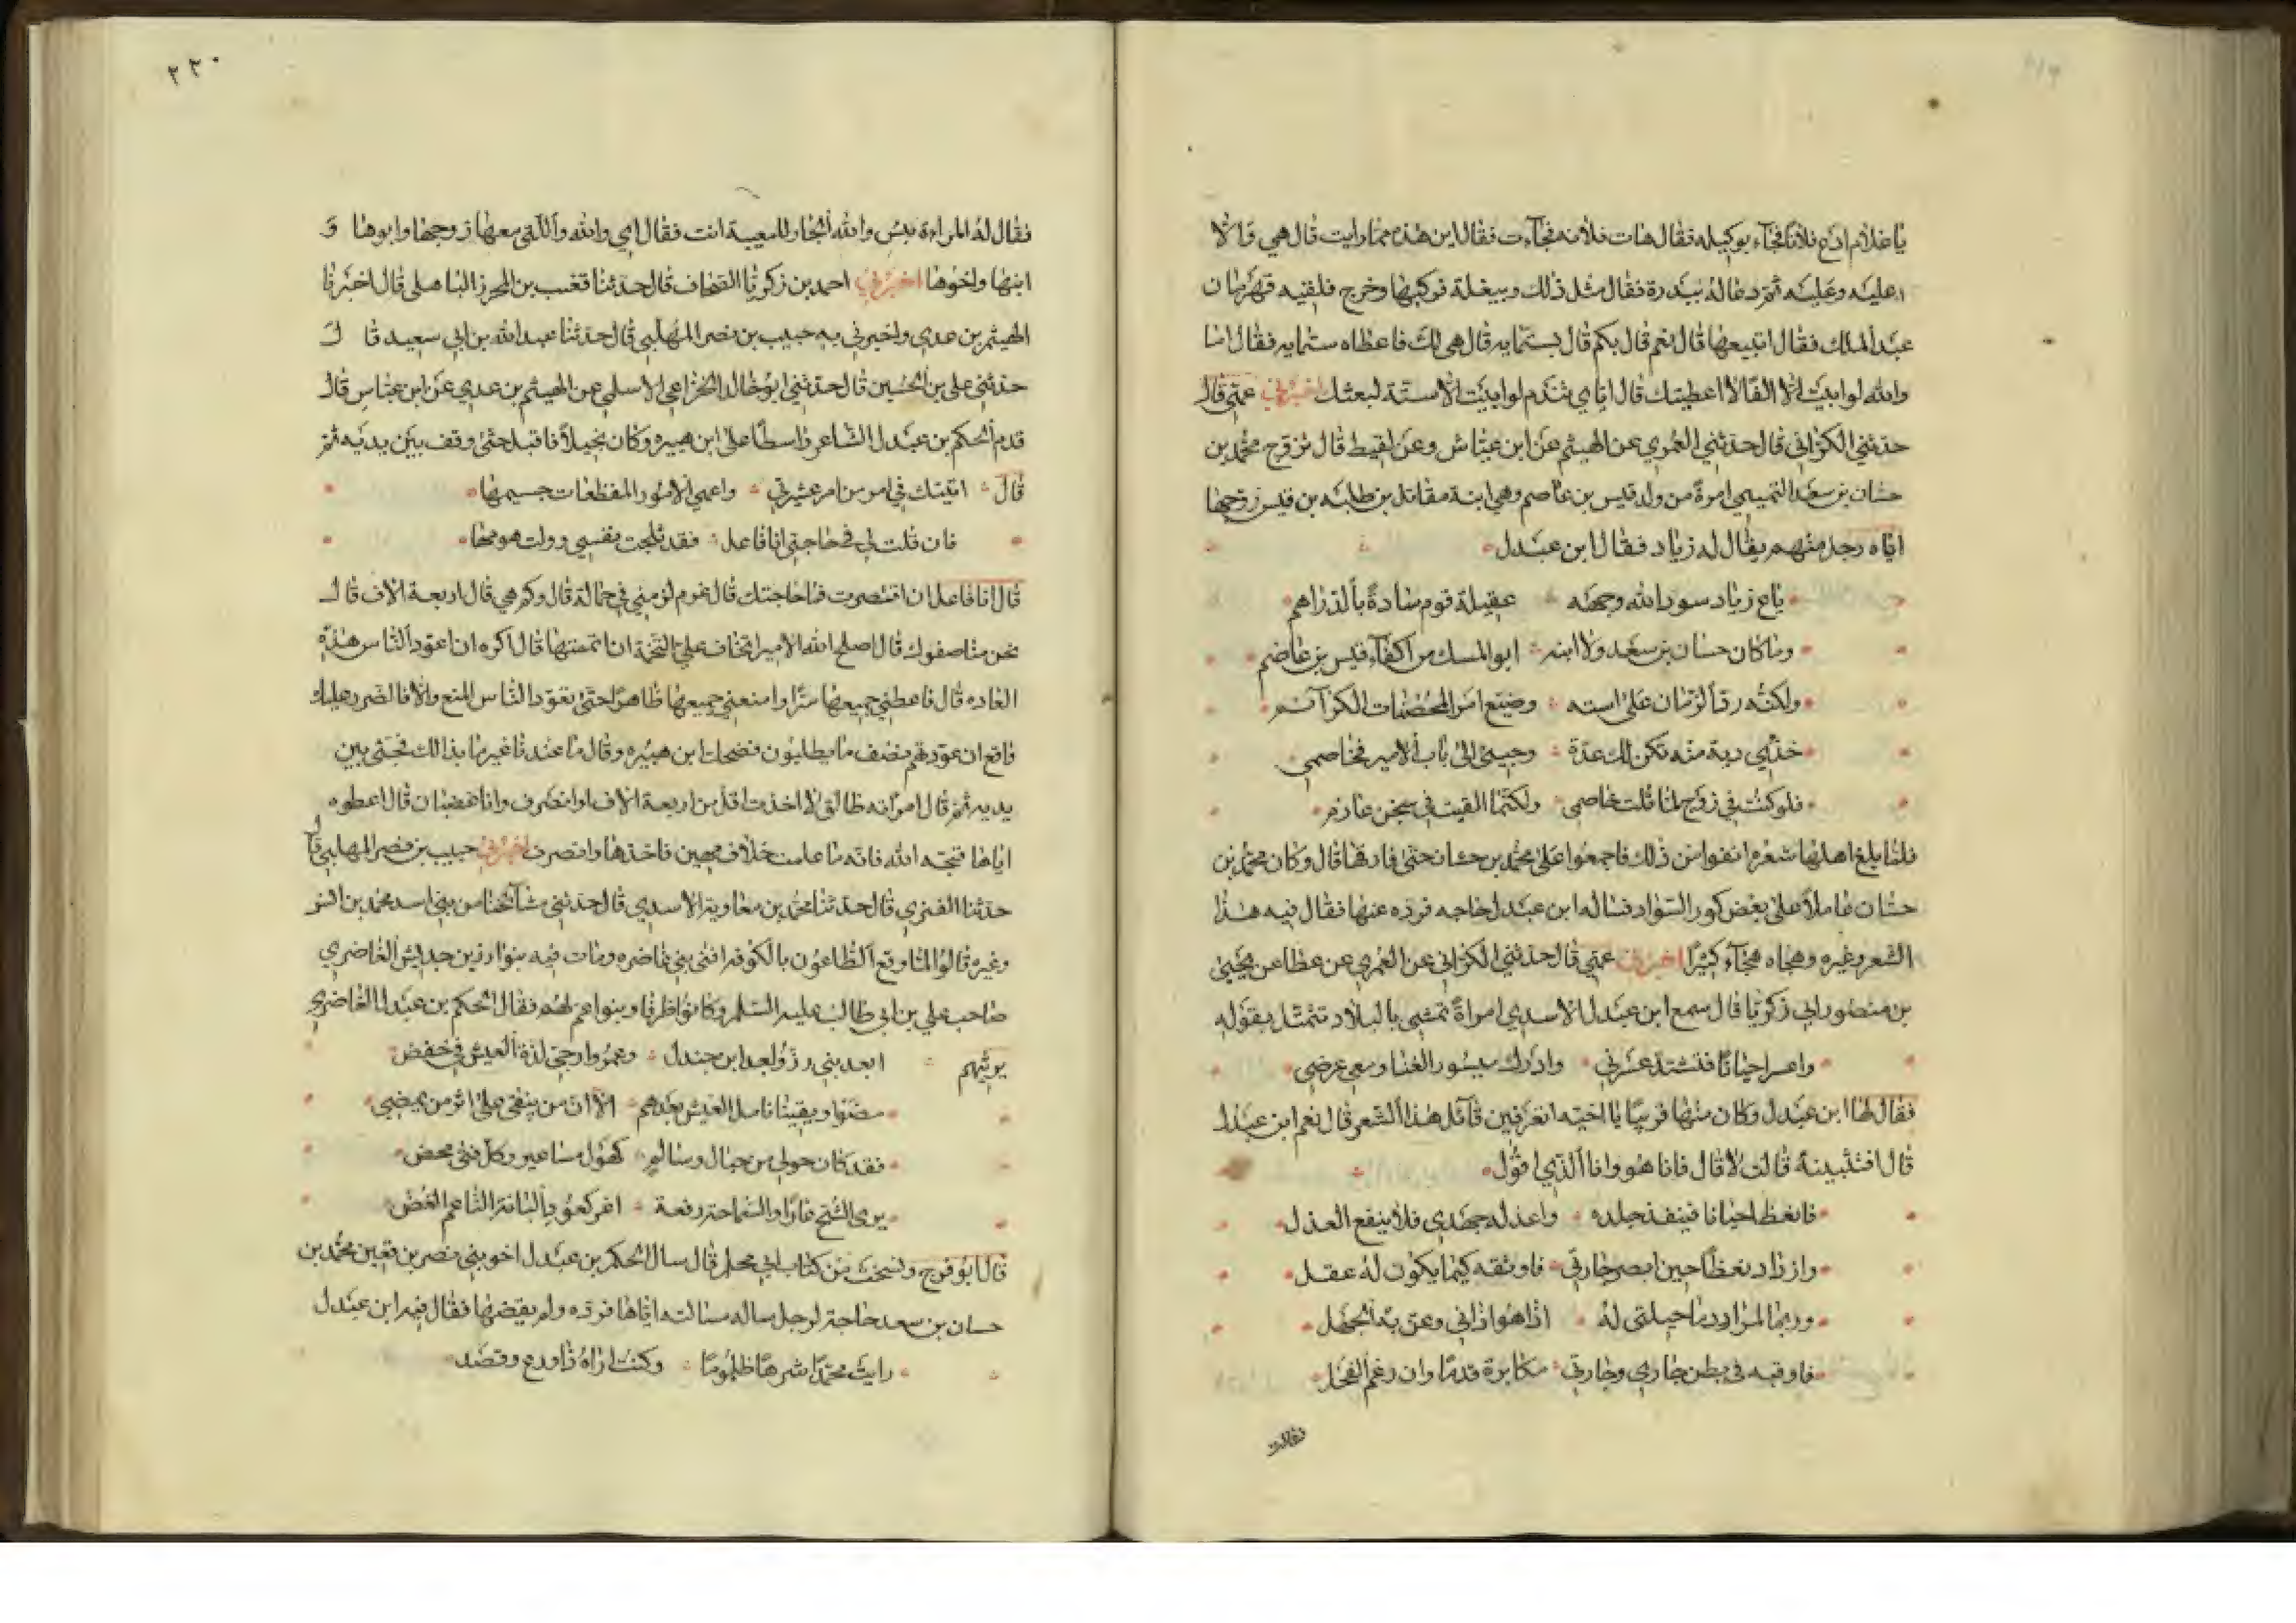 يا غلام ادع فلانا فجآء بوكيله فقال هات فلانه فجآءت فقال اين هذه مما رايت قال هي والا
عليه وعليه ثم دعا له ببدرة فقال مثل ذلك وببغلة فركبها وخرج فلقيه قهرمان
عبد الملك فقال اتبيعها قال نعم قال بكم قال بستمايه قال هي لك فاعطاه ستمايه فقال اما
والله لو ابيت الا الفا لاعطيتك قال اياي تندم لو ابيت الا ستة لبعتك اخبرني عمي قال
حدثني الكراني قال حدثني العمري عن الهيثم عن ابن عياش وعن لقيط قال تزوج محمد بن
حسان بن سعد التميمي امرة من ولد قيس بن عاصم وهي ابنة مقاتل بن طلبه بن قيس زوجها
اياه رجل منهم يقال له زياد فقال ابن عبدل
باع زياد سود الله وجهه عقيلة قوم سادة بالدراهم
وما كان حسان بن سعد ولا ابنه ابو المسك من اكفآء قيس بن عاصم
ولكنه رد الزمان على استه وضيع امر المحصنات الكرآئم
خذي دية منه تكن لك عدة وجيئي الى باب الامير فخاصمي
فلو كنت في زوج لما قلت خاصمي ولكنما القيت في سجن عارم
فلما بلغ اهلها شعره انفوا من ذلك فاجمعوا على محمد بن حسان حتى فارقها قال وكان محمد بن
حسان عاملا على بعض كور السواد فساله ابن عبدل حاجه فرده عنها فقال فيه هذا
الشعر وغيره وهجاه هجآء كثيرا اخبرني عمي قال حدثني الكراني عن العمري عن عطا عن يحيى
بن منصور ابي زكريا قال سمع ابن عبدل الاسدي امراة تمشي بالبلاد تتمثل بقوله
واعسر احيانا فتشتد عسرتي وادرك ميسور الغنا ومعي عرضي
فقال لها ابن عبدل وكان منها قريبا يا اخيه اتعرفين قآئل هذا الشعر قال نعم ابن عبدل
قال افتثبينه قالت لا قال فانا هو وانا الذي اقول
فانعظ احيانا فينقد جلده واعذله جهدي فلا ينفع العذل
وازداد نعظا حين ابصر جارتي فاوثقه كيما يكون له عقل
وربما لم ادر ما حيلتي له اذا هو اذاني وعن به الجهل
فاوقبه في بطن جاري وجارتي مكابرة قدما وان رغم الفحل
فقالت
٢٢٠
فقال له المراة بئس والله الجار للمغيبة انت فقال اي والله والتي معها زوجها وابوها و
ابنها واخوها اخبرني احمد بن زكريا القحاف قال حدثنا قعنب بن المحرز الباهلي قال اخبرنا
الهيثم بن عدي واخبرني به حبيب بن نصر المهلبي قال حدثنا عبد الله بن ابي سعيد قال
حدثني علي بن الحسين قال حدثني ابو خالد الخزاعي الاسلمي عن الهيثم بن عدي عن ابن عياس قال
قدم الحكم بن عبدل الشاعر واسطا على ابن هبيره وكان بخيلا فاقبل حتى وقف بين يديه ثم
قال اتيتك في امر من امر عشيرتي واعيي الامور المفظعات جسيمها
فان قلت لي في حاجتي انا فاعل فقد ثلجت نفسي وولت همومها
قال انا فاعل ان اقتصرت فما حاجتك قال غرم لزمني في حمالة قال وكم هي قال اربعة الاف قال
نحن مناصفوك قال اصلح الله الامير اتخاف علي التخمة ان اتممتها قال اكره ان اعود الناس هذه
العاده قال فاعطني جميعها سرا وامنعني جميعها ظاهرا حتى تعود الناس المنع والا فالضرر عليك
واقع ان عودتهم نصف ما يطلبون فضحك ابن هبيره وقال ما عندنا غير ما بذلك فجثى بين
يديه ثم قال امرانه طالق لا اخذت اقل من اربعة الاف او انصرف وانا غضبان قال اعطوه
اياها قبحه الله فانه ما علمت حلاف مهين فاخذها وانصرف اخبرني حبيب بن نصر المهلبي قال
حدثنا الغنزي قال حدثنا محمد بن معاوية الاسدي قال حدثني مشآئخنا من بني اسد محمد بن انس
وغيره قالوا لما وقع الطاعون بالكوفه افنى بني غاضره ومات فيه بنوا رزين حبايش الغاضري
صاحب علي بن ابي طالب عليه السلم وكانوا ظرفا وبنوا عم لهم فقال الحكم بن عبدل الغاضري
يرثيهم ابعد بني رز وبعد ابن جندل وعمرو ارجي لذة العيش في خفض
مضوا وبقينا نامل العيش بعدهم الا ان من يبقى على اثر من يمضي
فقد كان حولي من حبال وسالم كهول مساعير وكل فتى محض
يرى الشح عارا والسماحة رفعة اغر كعود البانة الناعم الغض
قال ابو فرج ونسخت من كتاب ابي محلم قال سال الحكم بن عبدل اخو بني نصر بن قعين محمد بن
حسان بن سعد حاجة لرجل ساله مسالته اياها فرده ولم يقضها فقال فيه ابن عبدل
رايت محمدا شرها ظلوما وكنت اراه ذا ورع وقصد